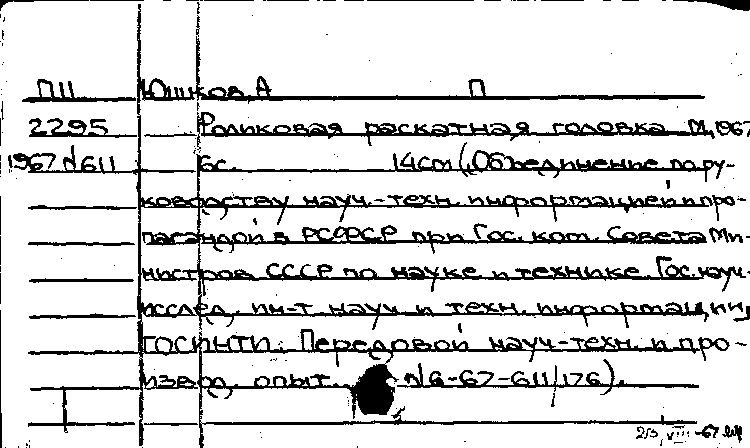 ПII Юшков, А П
2295 Роликовая раскатная головка М, 1967
1967 №611 6с. 14см („Объединение по ру-
ководству науч.-техн. информацией и про-
пагандой в РСФСР при Гос. ком. Совета Ми-
нистров СССР по науке и технике. Гос. науч-
исслед. ин-т науч. и техн. информации,
ГОСИНТИ. Передовой науч-техн. и про-
извод. опыт. №6-67-611/176).
VIII-67